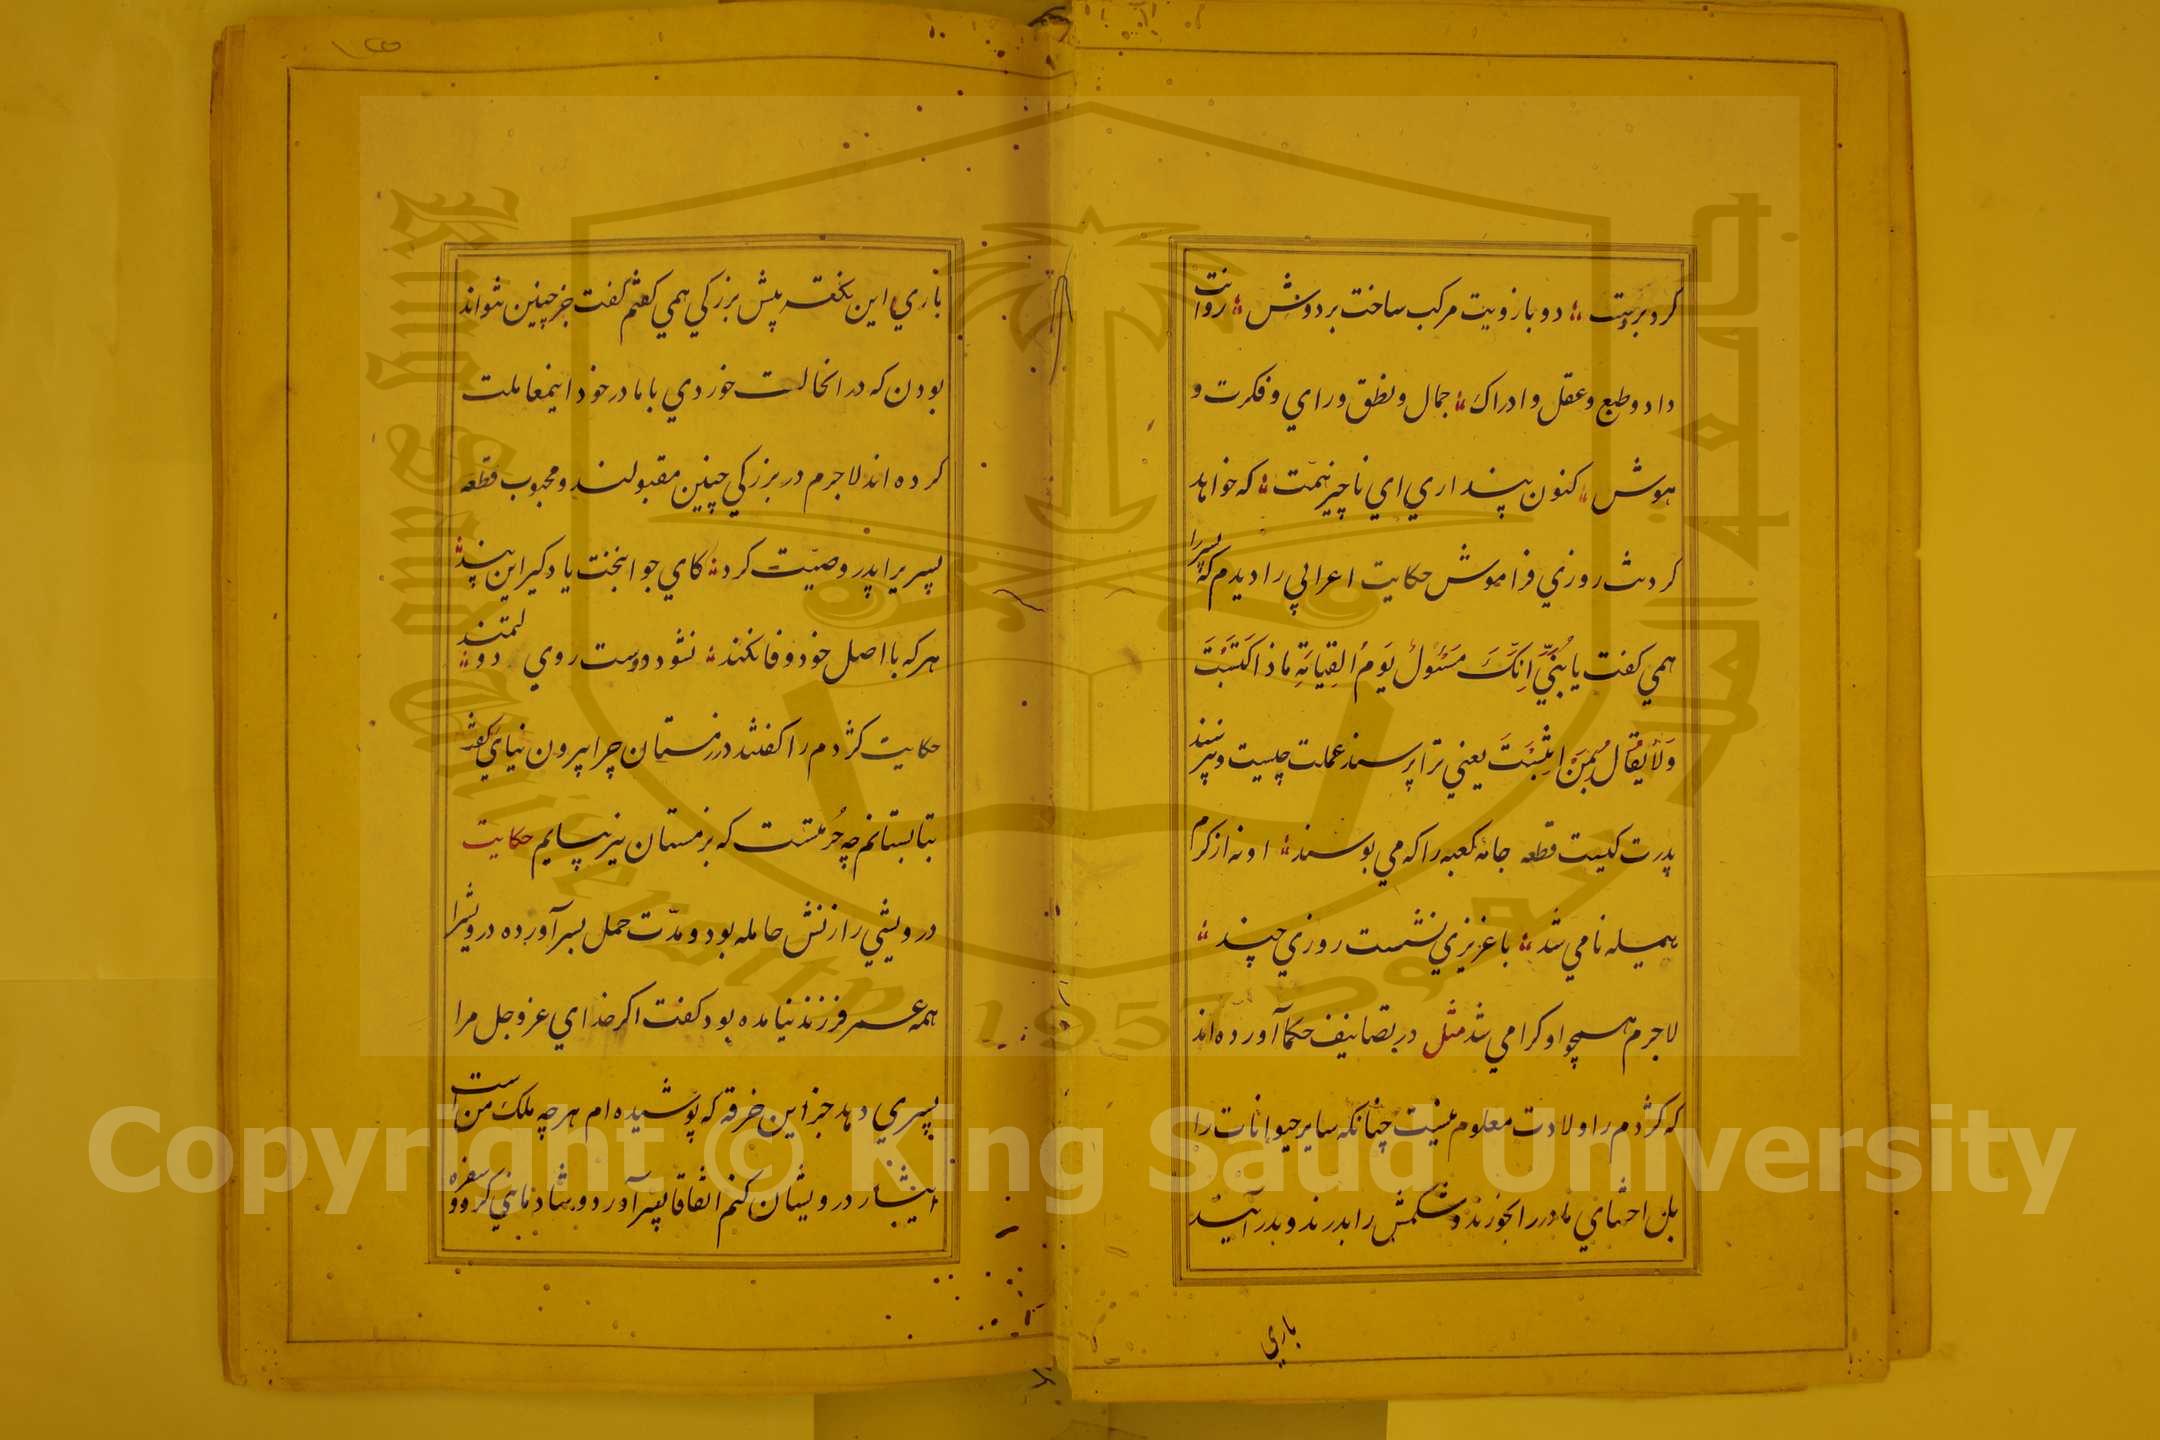 کرد بر دست ؛ دو بازویت مرکب ساخت بر دوش ؛ روانت
داد و طبع و عقل و ادراک ؛ جمال و نطق و راي و فکرت و
هوش ؛ کنون پنداري اي ناچیز همّت ؛ که خواهد
کردنت روزي فراموش حکایت اعرابي را دیدم که پسر را
همي کفت یا بُنَيَّ اِنَّکَ مَسْئولٌ یَومَ القِیامَةِ ماذا کتَسَبْتَ
وَلا یُقالُ بِمَن انتَسَبْتَ یعني ترا پرسند عملت چیست و نپرسند
پدرت کیست قطعه جامۀ کعبه را که مي بوسند ؛ او نه از کرم
پیله نامي شد ؛ با عزیزي نشست روزي چند ؛
لاجرم همچو او کرامي شد مثل در تصانیف حکما آورده اند
که کژدم را ولادت معلوم نیست چنانکه سایر حیوانات را
بل احشاي مادر را بخورند و شکمش را بدرند و بدر آیند
باري
باري این نکته پیش بزرکي همي کفتم کفت جز چنین نتواند
بودن که در انحالت خوردي با مادر خود اینمعاملت
کرده اند لاجرم در بزرکي چنین مقبولند و محبوب قطعه
پسریرا پدر وصیّت کرد ؛ کاي جوانبخت یاد کیر این پند ؛
هر که با اصل خود وفا نکند ؛ نشود دوست روي دولتمند ؛
حکایت کژدم را کفتند در زمستان چرا بیرون نیایي کفت
بتابستانم چه حُرمتست که بزمستان نیز بیایم حکایت
درویشي را زنش حامله بود و مدّت حمل بسر آورده درویشرا
همه عمر فرزند نیامده بود کفت اکر خداي عز و جل مرا
پسري دهد جز این خرقه که پوشیده ام هر چه ملک من است
ایثار درویشان کنم اتفاقا پسر آورد و شادماني کرد و سفره
Copyright © King Saud University
King Saud University
1957